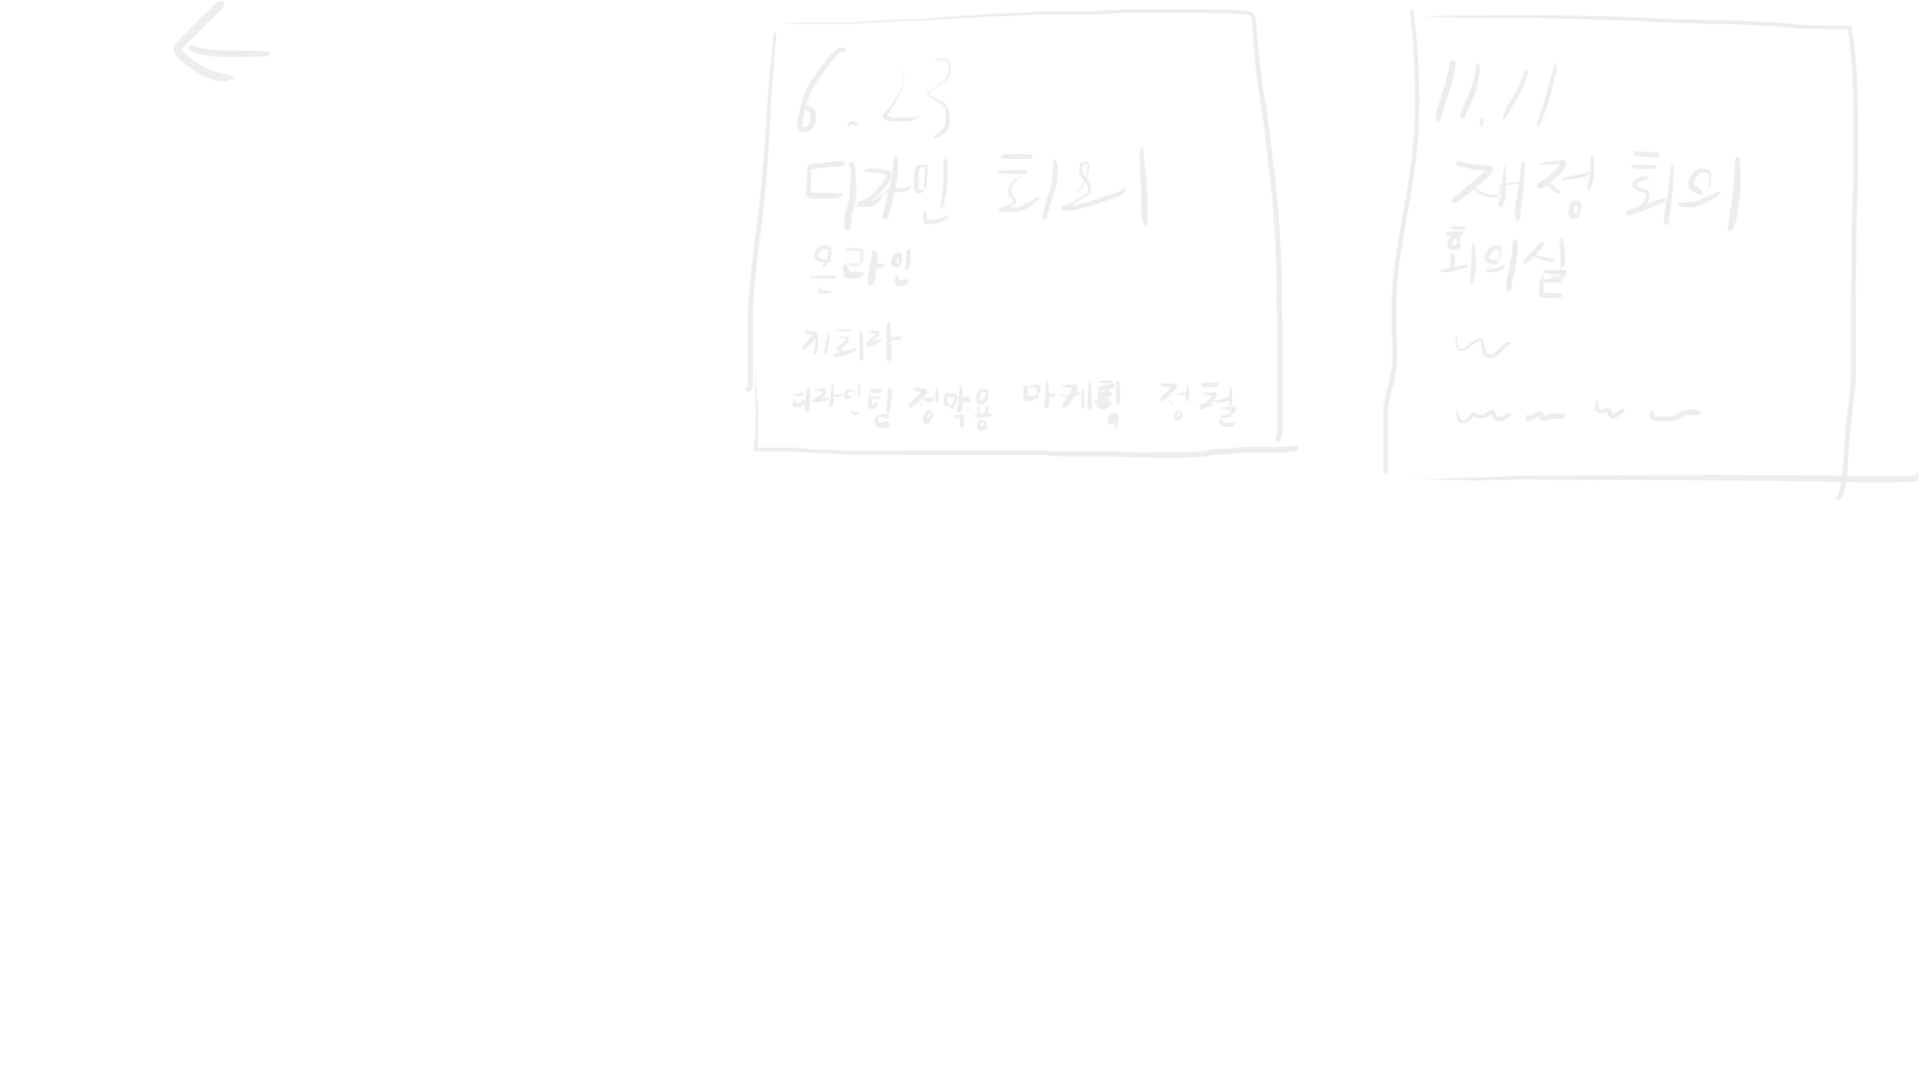 6.23
디자인 회의
온라인
디자인팀 정약용 마케팅 정철
11.11
재정 회의
회의실